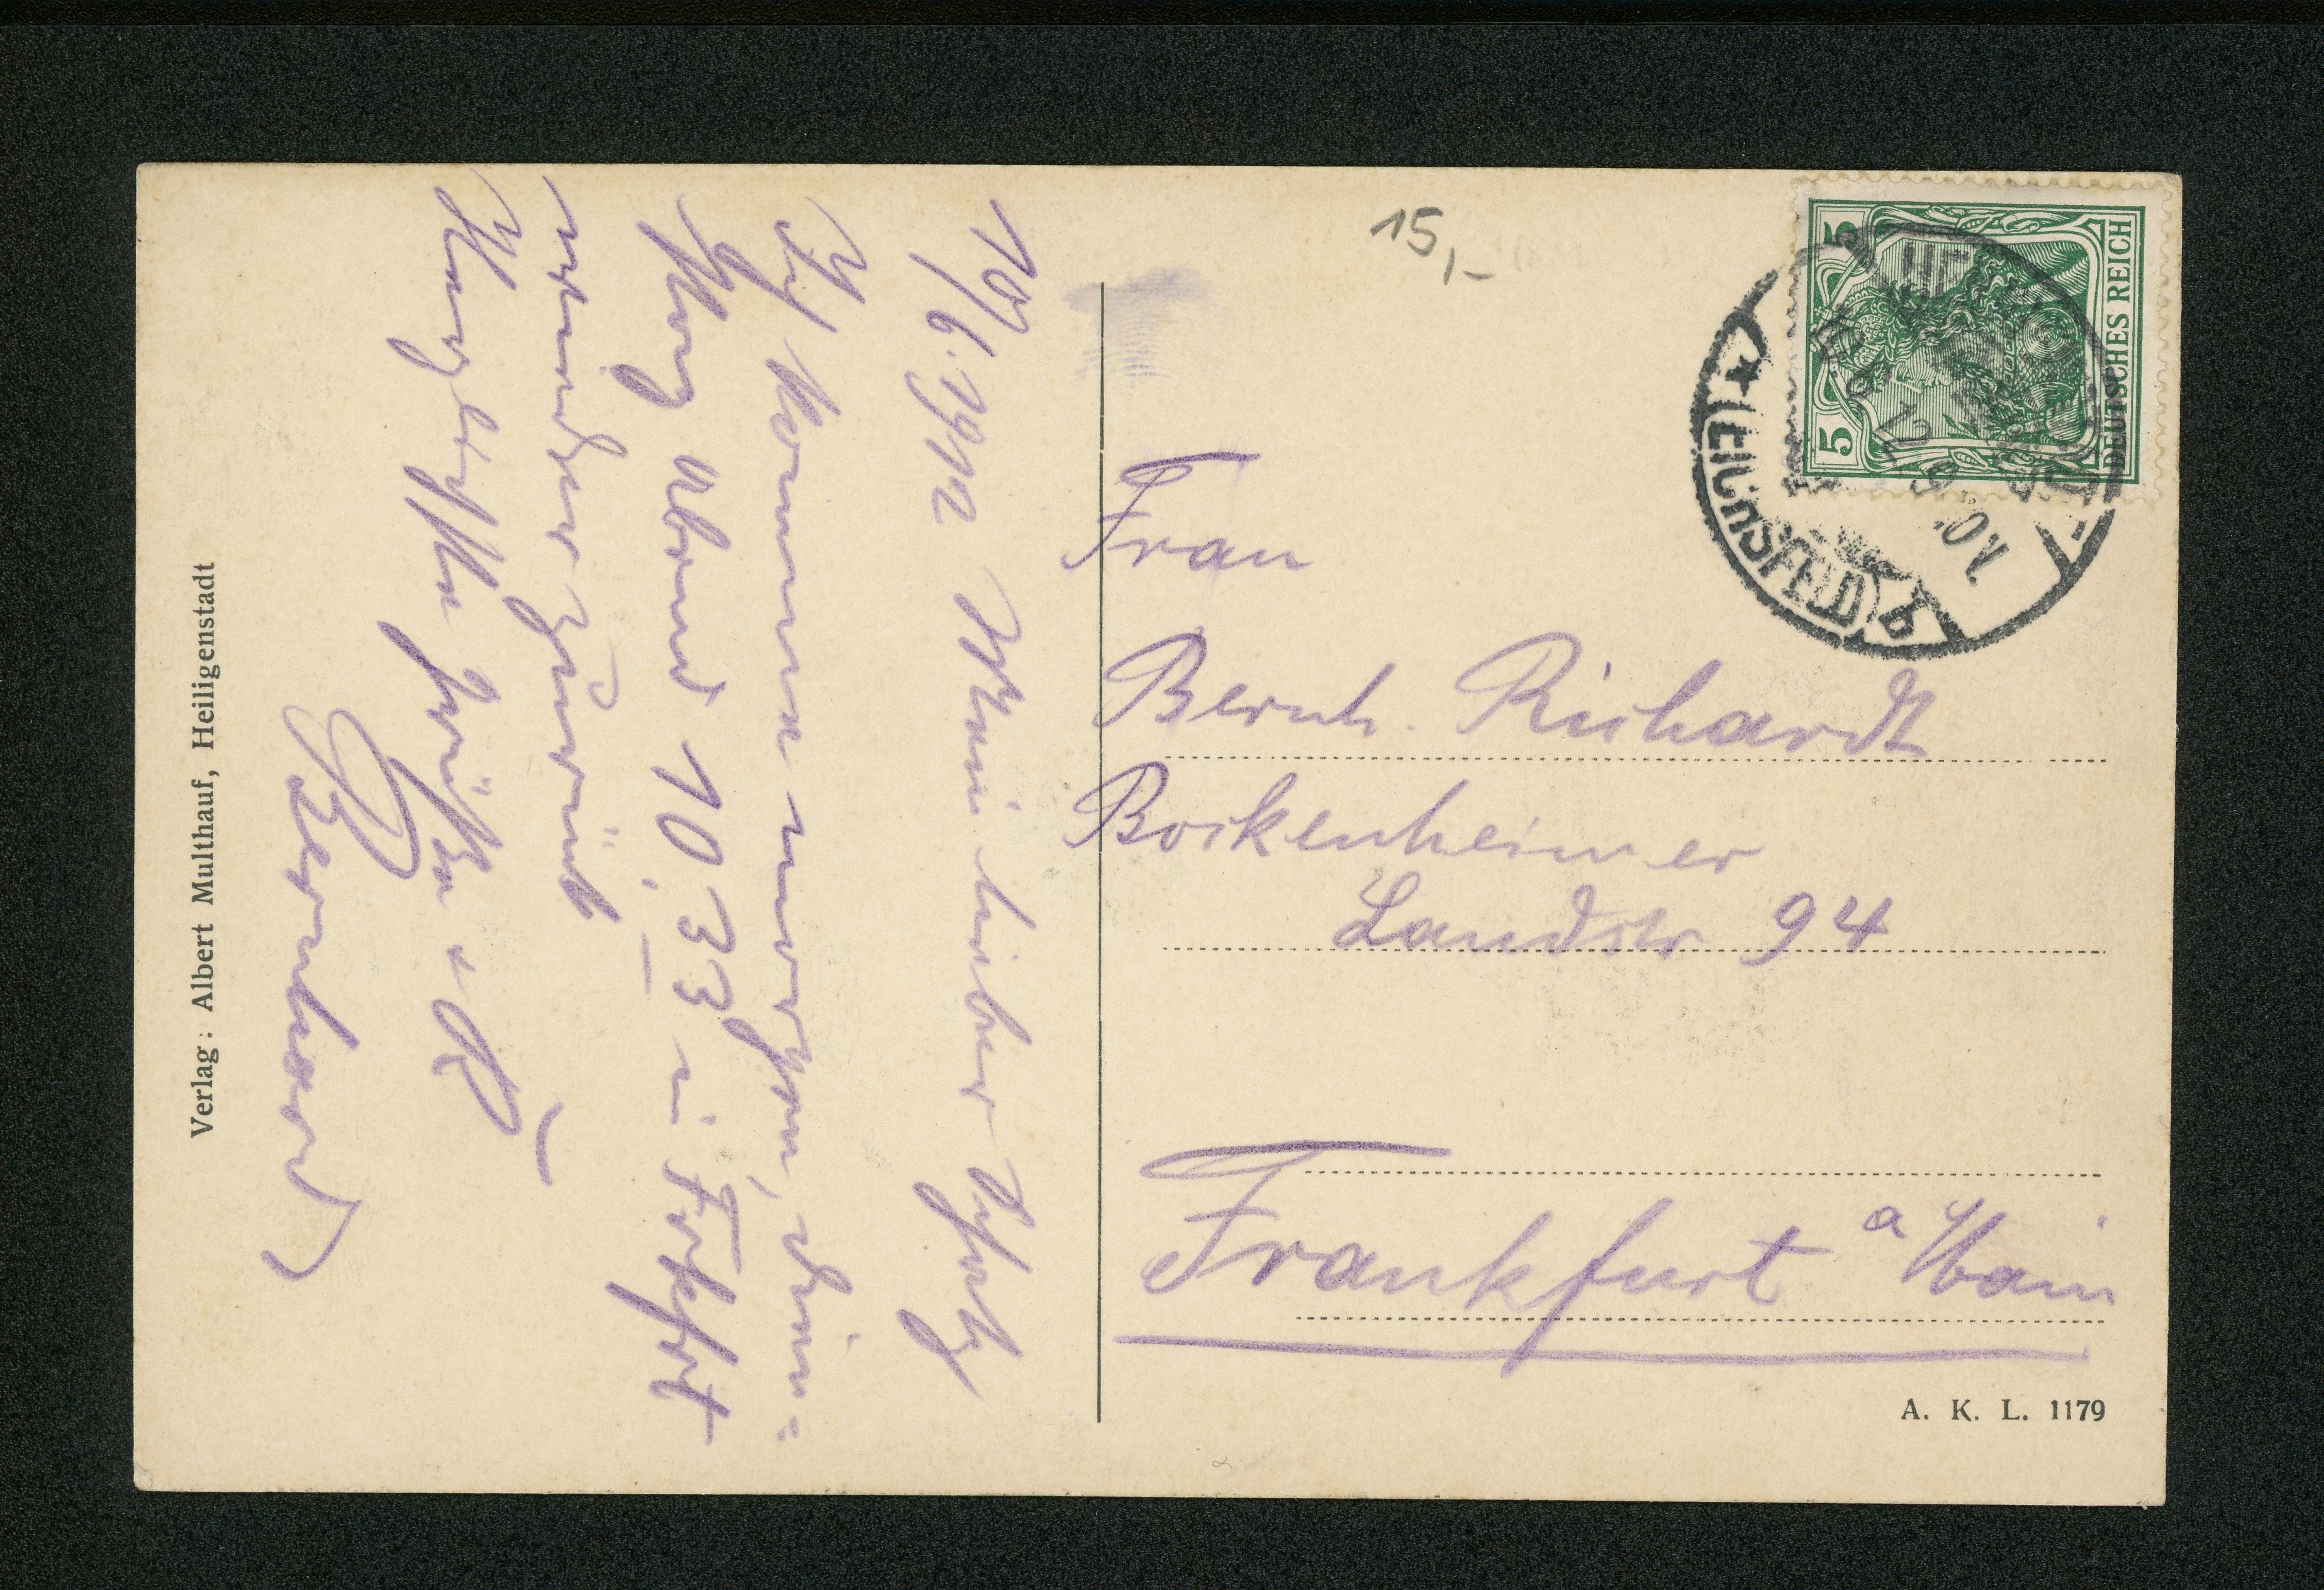 10/6. 1912 Mein lieber Schatz
Ich komme morgen, Diens=
tag Abend 10.33 in Frkfurt
wieder zurück
Herzlichste Grüße u K
Bernhard
Verlag: Albert Multhauf, Heiligenstadt
15,-
5 5
DEUTSCHES REICH
(EICHSFELD) b
Frau
Bernh. Richardt
Bockenheimer
Landstr 94
Frankfurt a Main
A. K. L. 1179